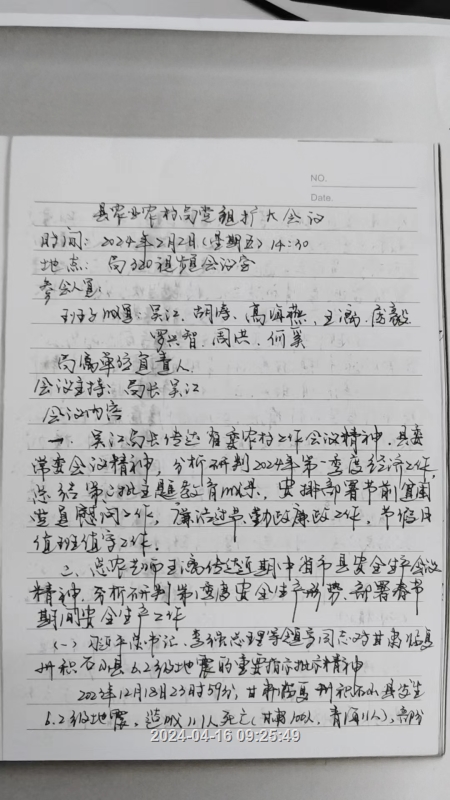 NO.
Date.
县农业农村局党组扩大会议
时间：2024年2月2日（星期五）14:30
地点：局320视频会议室
参会人员：
班子成员：吴江、胡涛、高 燕、王 、唐毅
罗 智、周洪、何
局属单位负责人
会议主持：局长吴江
会议内容
一、吴江局长传达省委农村工作会议精神、县委
常委会议精神，分析研判2024年第一季度经济工作，
总结第二批主题教育成果，安排部署节前困
党员慰问工作，廉洁过节、勤政廉政工作，节假日
值班值守工作。
二、总农艺师王 传达近期中省市县安全生产会议
精神，分析研判第一季度安全生产形势，部署春节
期间安全生产工作
（一）习近平总书记、李强总理等领导同志对甘肃临夏
州积石山县6.2级地震的重要指示批示精神
2023年12月18日23时59分，甘肃临夏州积石山县发生
6.2级地震，造成111人死亡（甘肃100人，青海11人），部分
2024-04-16 09:25:49